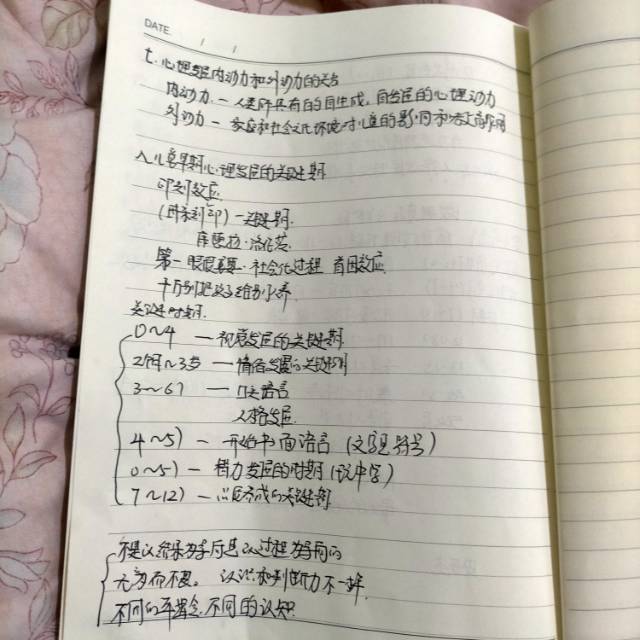 DATE / /
七.心理发展内动力和外动力的关
内动力.一人是所具有的自生成,自发展的心理动力
外动力一家庭和社会文化环境对儿童的影响和教育作用
八儿童早期心理发展的关键期
印刻效应
一关键期.
第一眼很重要.社会化过程 首因效应
千万别把孩子给别人养
关键时期:
0~4 一视觉发展的关键期
2个月~3岁 一情绪发展的关键期
3~6) 一口头语言
人格发展
4~5) 一开始书面语言(文字符号)
0~5) 一智力发展的时期(说中了)
7~12) 一关键期
不是以结果为导向是以过程为导向的
无为而不为。认识和判断力不一样
不同的年龄会不同的认知